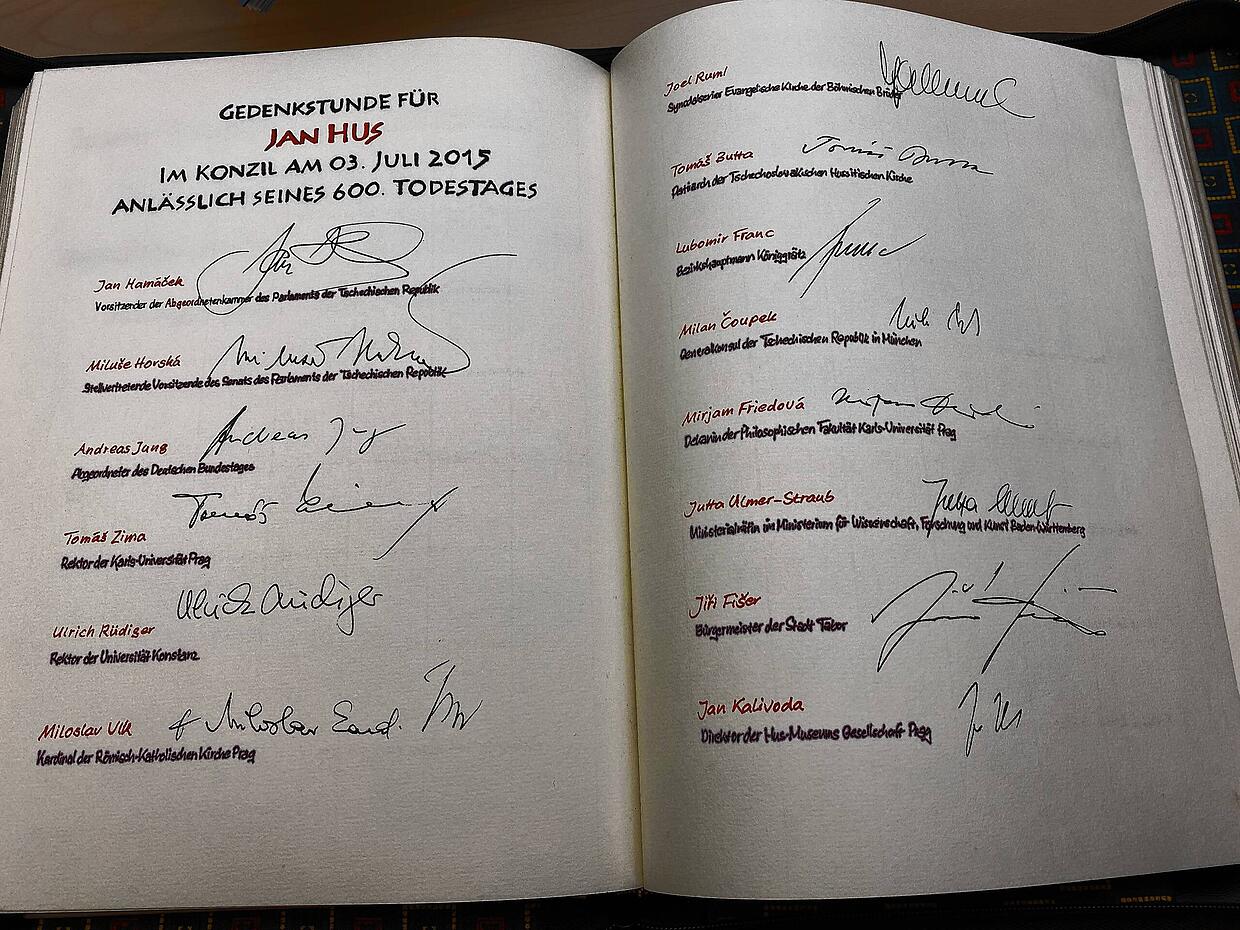 GEDENKSTUNDE FÜR
JAN HUS
IM KONZIL AM 03. JULI 2015
ANLÄSSLICH SEINES 600. TODESTAGES
Jan Hamáček
Vorsitzender der Abgeordnetenkammer des Parlaments der Tschechischen Republik
Miluše Horská
Stellvertretende Vorsitzende des Senats des Parlaments der Tschechischen Republik
Andreas Jung
Andreas Jung
Abgeordneter des Deutschen Bundestages
Tomáš Zima
Rektor der Karls-Universität Prag
Ulrich Rüdiger
Ulrich Rüdiger
Rektor der Universität Konstanz
Miloslav Vlk
Miloslav Card. Vlk
Kardinal der Römisch-Katholischen Kirche Prag
Joel Ruml
Synodalsenior Evangelische Kirche der Böhmischen Brüder
Tomáš Butta
Tomáš Butta
Patriarch der Tschechoslowakischen Hussitischen Kirche
Lubomir Franc
Bezirkshauptmann Königgrätz
Milan Čoupek
Generalkonsul der Tschechischen Republik in München
Mirjam Friedová
Dekanin der Philosophischen Fakultät Karls-Universität Prag
Jutta Ulmer-Straub
Ministerialrätin im Ministerium für Wissenschaft, Forschung und Kunst Baden-Württemberg
Jiři Fišer
Bürgermeister der Stadt Tabor
Jan Kalivoda
Direktor der Hus-Museums Gesellschaft Prag